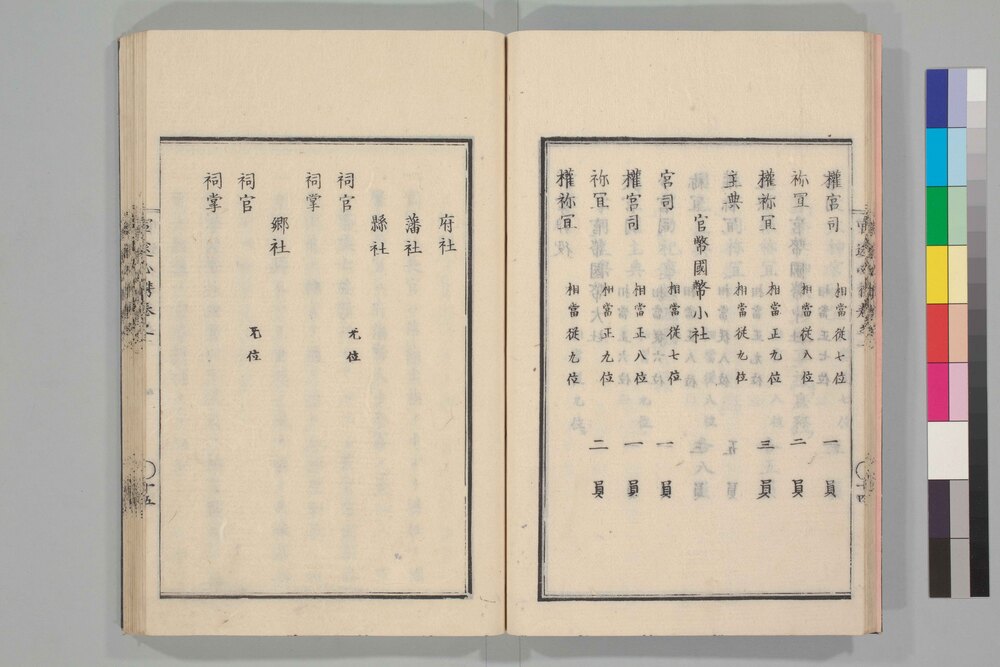 權宮司 相當從七位 一員
祢冝 相當從八位 二員
權祢冝 相當正九位 三員
主典 相當從九位
官幣國幣小社
宮司 相當從七位 一員
權宮司 相當正八位 一員
祢冝 相當正九位 二
權祢冝 相當從九位
十四
府社
藩社
縣社
祠官 无位
祠掌
郷社
祠官 无位
祠掌
十五